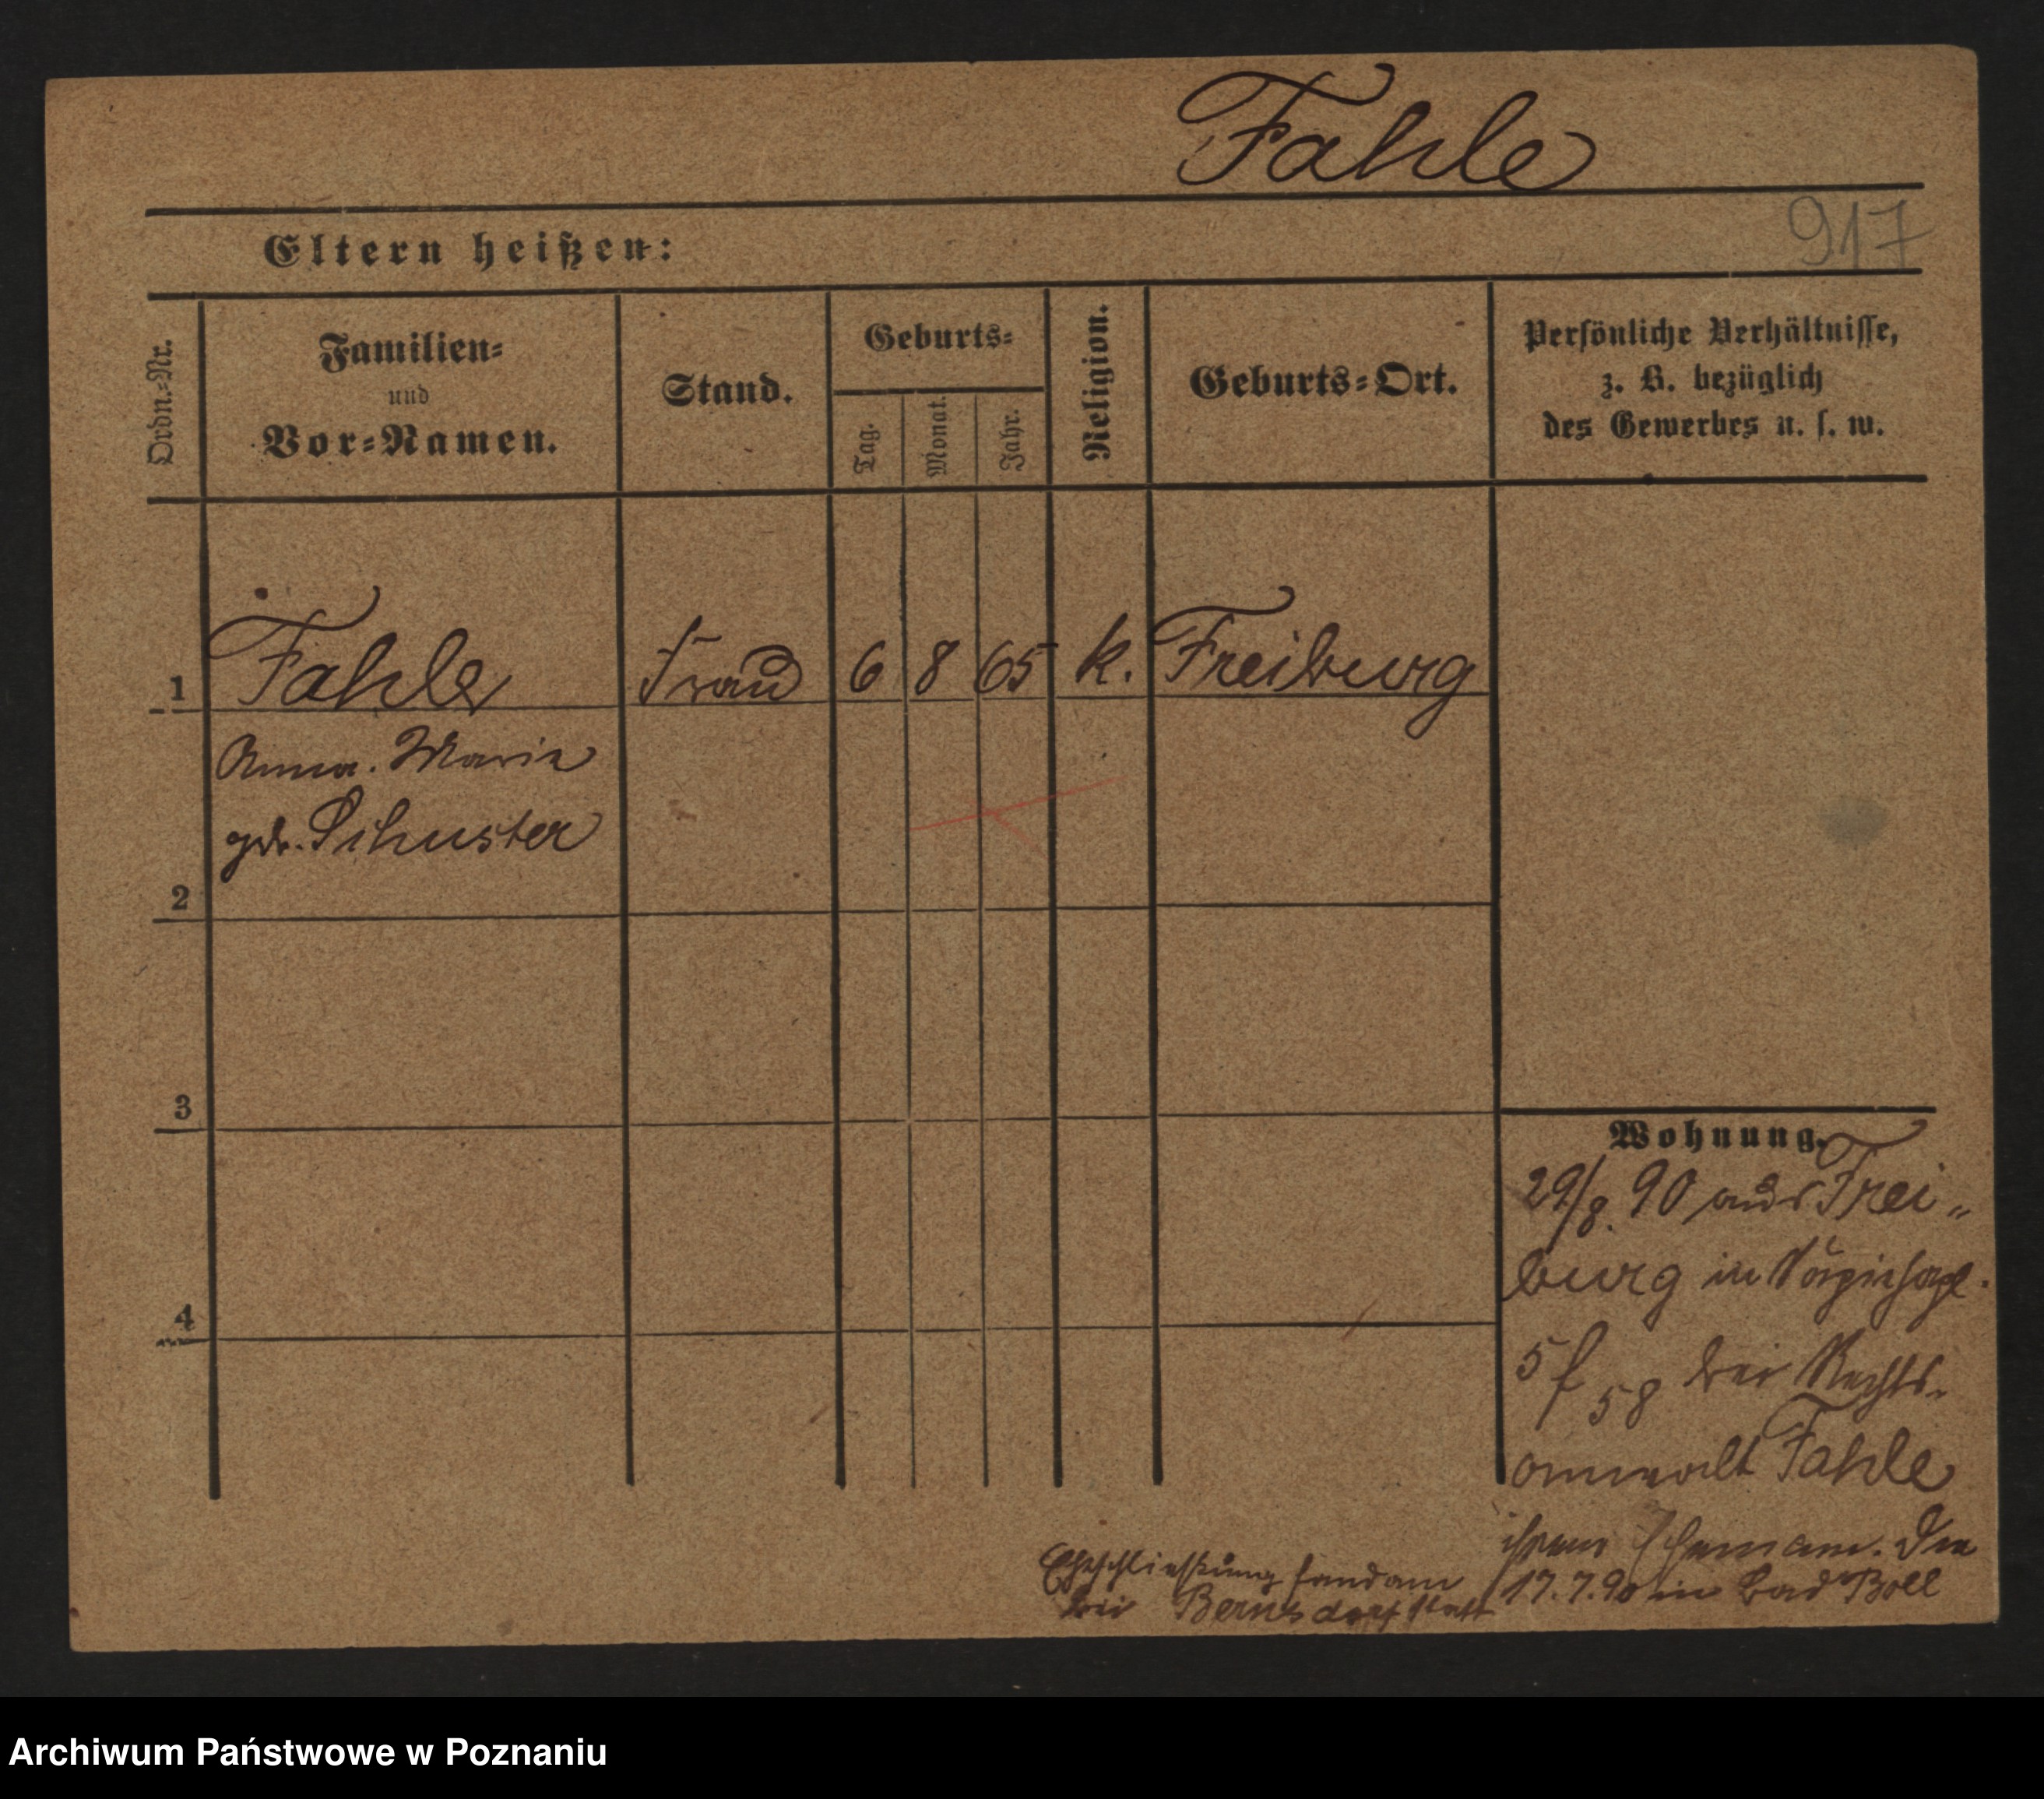 Fahle
917
Eltern heißen:
Ordn.=Nr.
Familien=
und
Vor=Namen.
Stand.
Geburts=
Tag.
Monat.
Jahr.
Religion.
Geburts=Ort.
Persönliche Verhältnisse,
z. B. bezüglich
des Gewerbes u. s. w.
1 Fahle Frau 6 8 65 k. Freiburg
Anna. Marie
geb. Schuster
2
3
4
Wohnung.
29/8. 90 aus Frei„
burg in
5 f 58 bei Rechts-
anwalt Fahle
ihrem Ehemann. Die
Eheschließung fand am 17.7.90 in Bad Boll
bei Bernsdorf statt